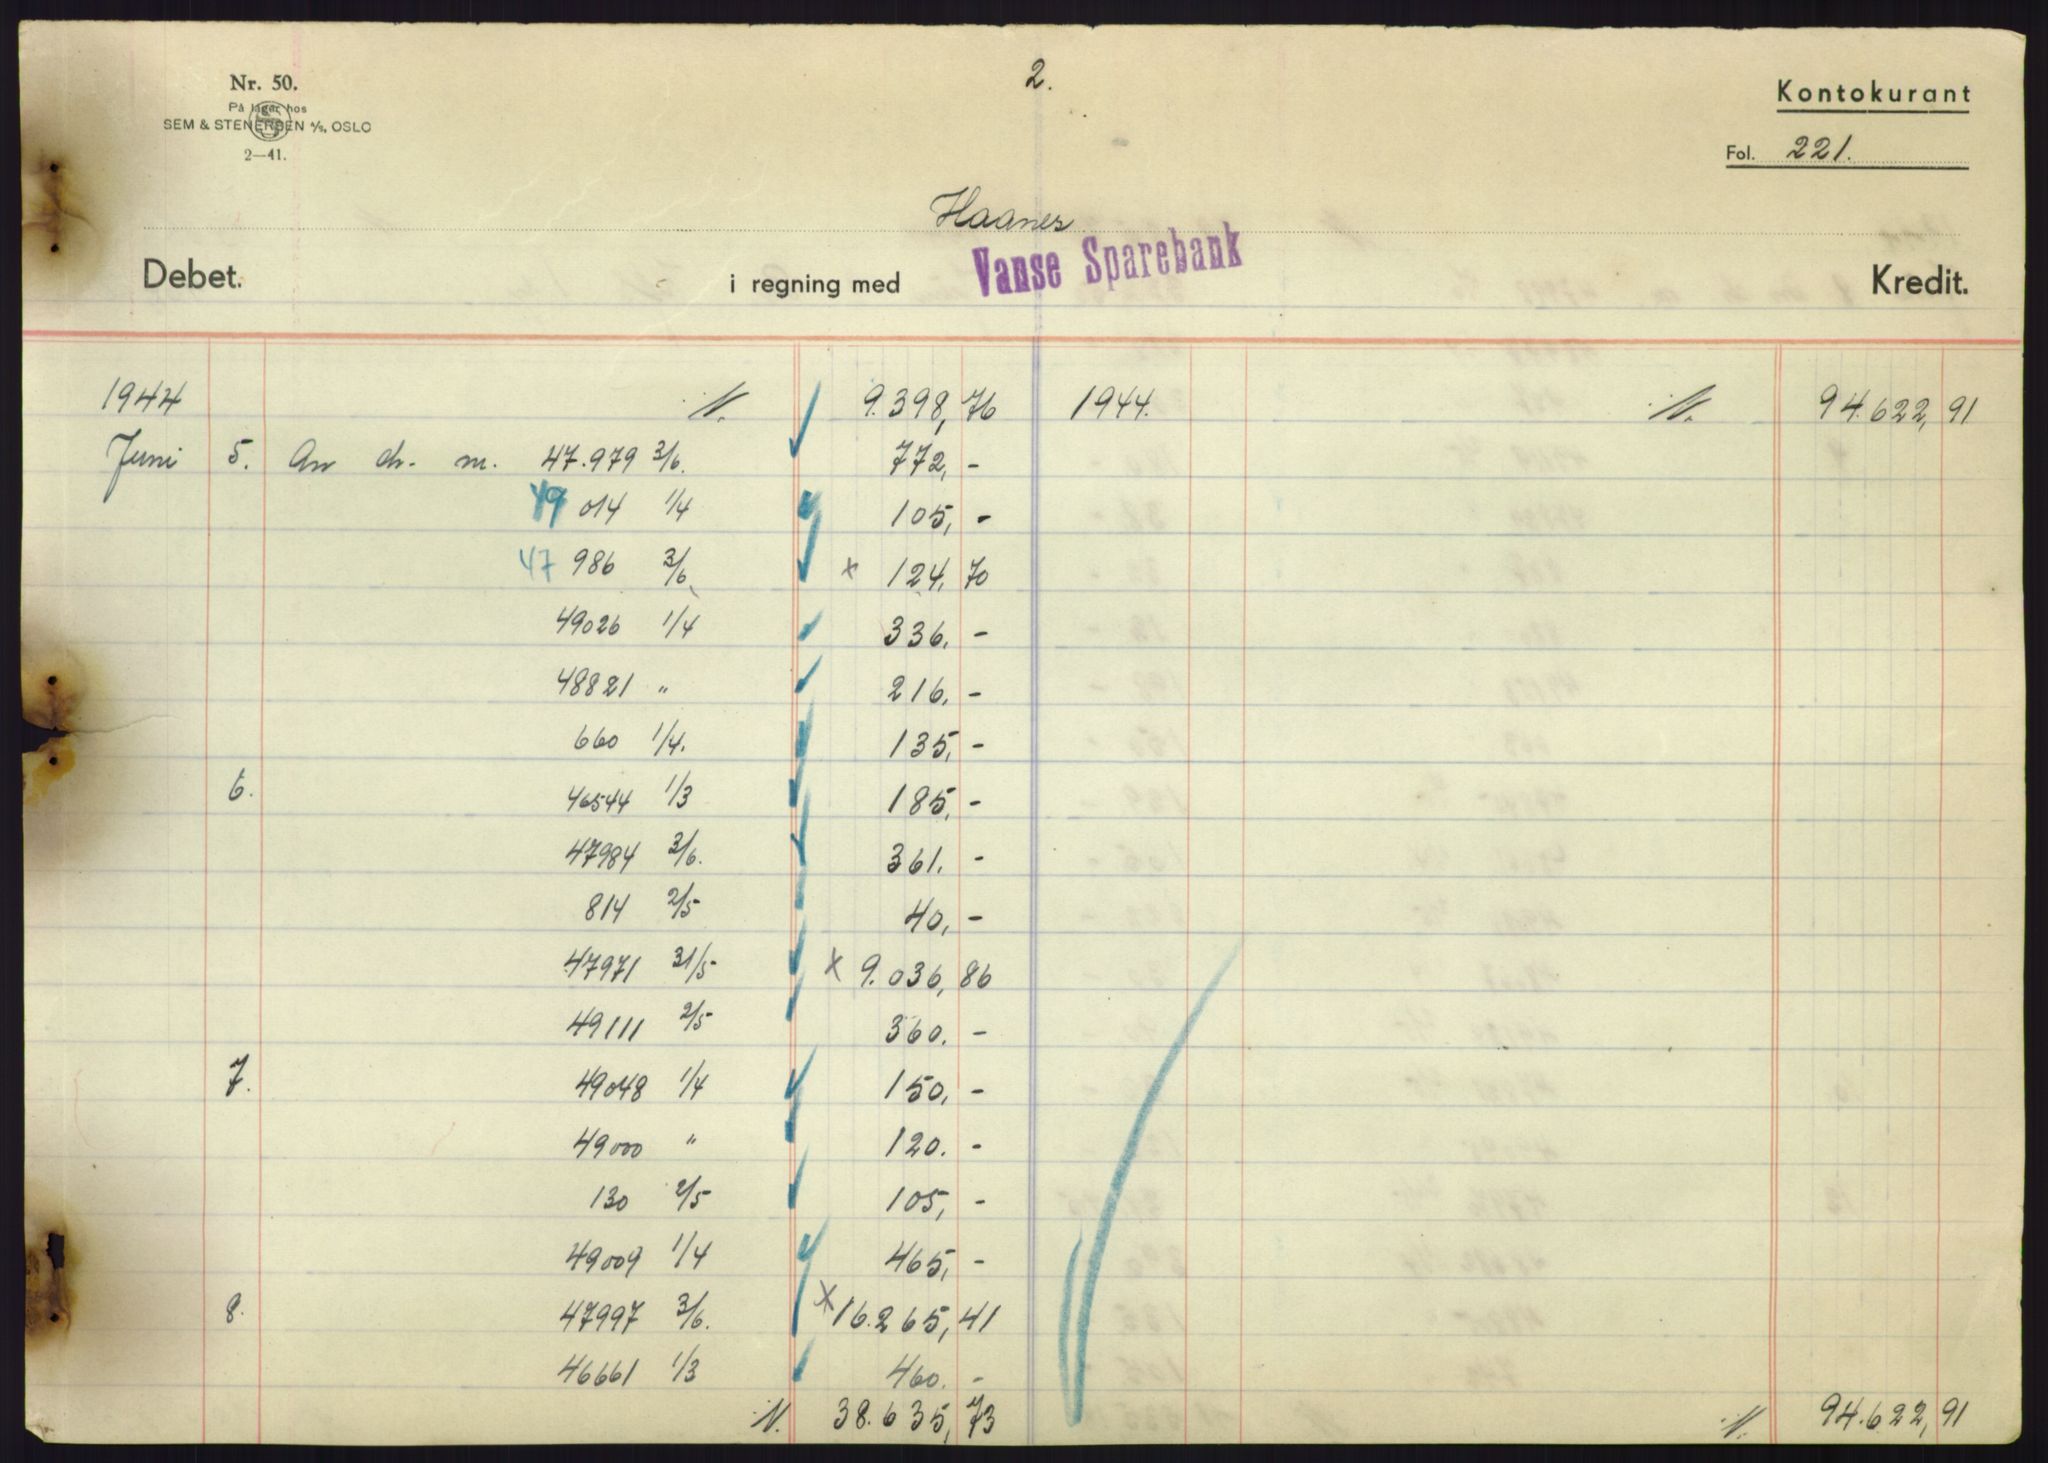 Nr. 50.
På lager hos
SEM & STENERSEN A/S, OSLO
2—41.
2.
Kontokurant
Fol. 221.
Haanes
Debet. i regning med Vanse Sparebank Kredit.
1944 ·/· 9.398,76 1944. ·/· 94.622,91
Juni 5. An ch. nr. 47.979 3/6. 772,-
49 014 1/4 105,-
47 986 3/6 x 124,70
49026 1/4 336.-
48821 " 216.-
660 1/4. 135,-
6. 46544 1/3 185,-
47984 3/6. 361.-
814 2/5 40,-
47971 31/5 x 9.036,86
49111 2/5 360.-
7. 49048 1/4 150,-
49000 " 120.-
130 2/5 105,-
49009 1/4 465,-
8. 47997 3/6. x 16.265,41
46661 1/3 460.-
·/·. 38.635,73 ·/·. 94.622,91